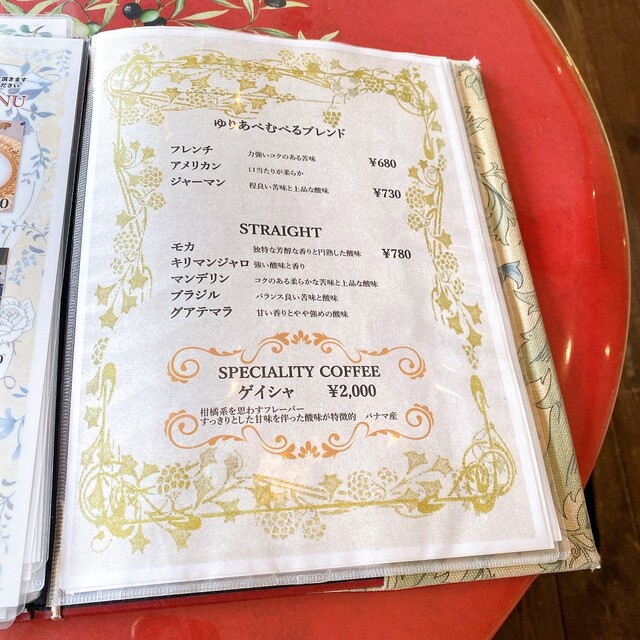 頂きます
ください
NU
0
ゆりあぺむぺるブレンド
フレンチ 力強いコクのある苦味 ¥680
アメリカン 口当たりが柔らか
ジャーマン 程良い苦味と上品な酸味 ¥730
STRAIGHT
モカ 独特な芳醇な香りと円熟した酸味 ¥780
キリマンジャロ 強い酸味と香り
マンデリン コクのある柔らかな苦味と上品な酸味
ブラジル バランス良い苦味と酸味
グアテマラ 甘い香りとやや強めの酸味
SPECIALITY COFFEE
ゲイシャ ¥2,000
柑橘系を思わすフレーバー
すっきりとした甘味を伴った酸味が特徴的 パナマ産